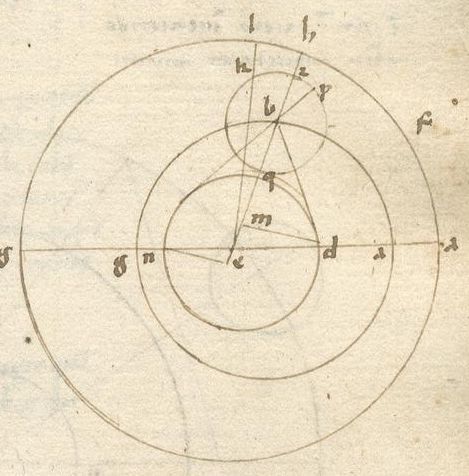 l h
k z
p
b
f
q
m
g g n e d a a